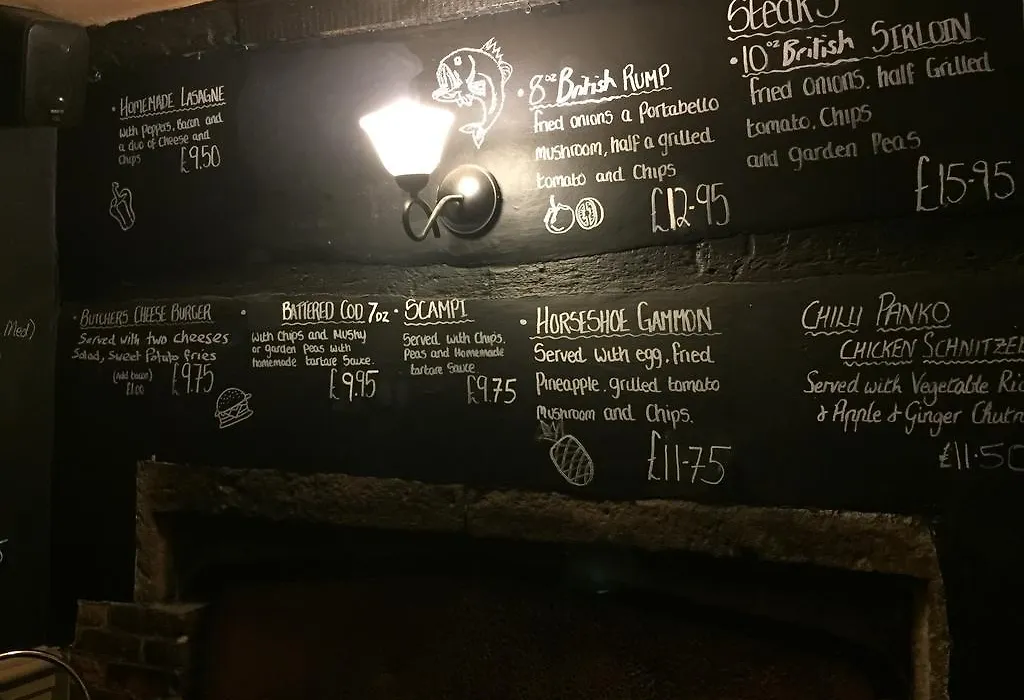 • HOMEMADE LASAGNE
with Peppers, Bacon and
a duo of Cheese and
Chips
£9.50
• 8oz British RUMP
fried onions a Portabello
mushroom, half a grilled
tomato and Chips
£12-95
Steaks
• 10oz British SIRLOIN
fried onions, half Grilled
tomato, Chips
and garden Peas
£15-95
Meal)
• BUTCHERS CHEESE BURGER
Served with two cheeses
Salad, Sweet Potato fries
(Add bacon)
£1.00
£9.75
• BATTERED COD 7oz
with Chips and Mushy
or garden Peas with
homemade tartare Sauce.
£9.95
• SCAMPI
Served with Chips,
Peas and Homemade
tartare Sauce
£9.75
• HORSESHOE GAMMON
Served with egg, fried
Pineapple, grilled tomato
Mushroom and Chips.
£11-75
CHILLI PANKO
CHICKEN SCHNITZEL
Served with Vegetable Ric
& Apple & Ginger Chutn
£11-50